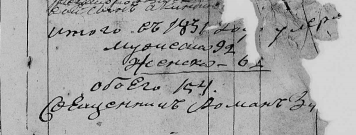 итого въ 1831 году умер
мужеска 92
женска 62
обоего 154.
Священникъ Романъ